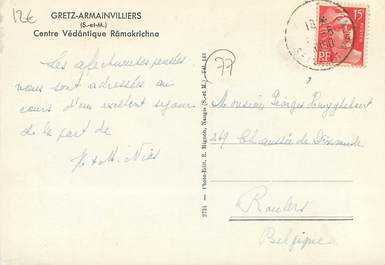 12€
GRETZ-ARMAINVILLIERS
(S.-et-M.)
Centre Védântique Râmakrichna
15F
RF
77
Les affectueuses pensées
vous sont adressées au
cours d'un excellent séjour
de la part de
H & M.
2725 - Photo-Edit. E. Mignon, Nangis (S.-et-M.) Tél. 141
Monsieur Georges Huyghebaert
269 Chaussée de Dixmude
Roulers
Belgique